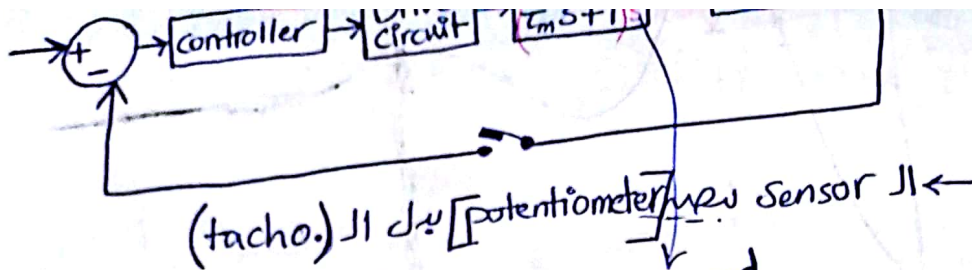 +
-
controller
circuit
τmS+1
← ال Sensor بصير [potentiometer] بدل ال (tacho.)